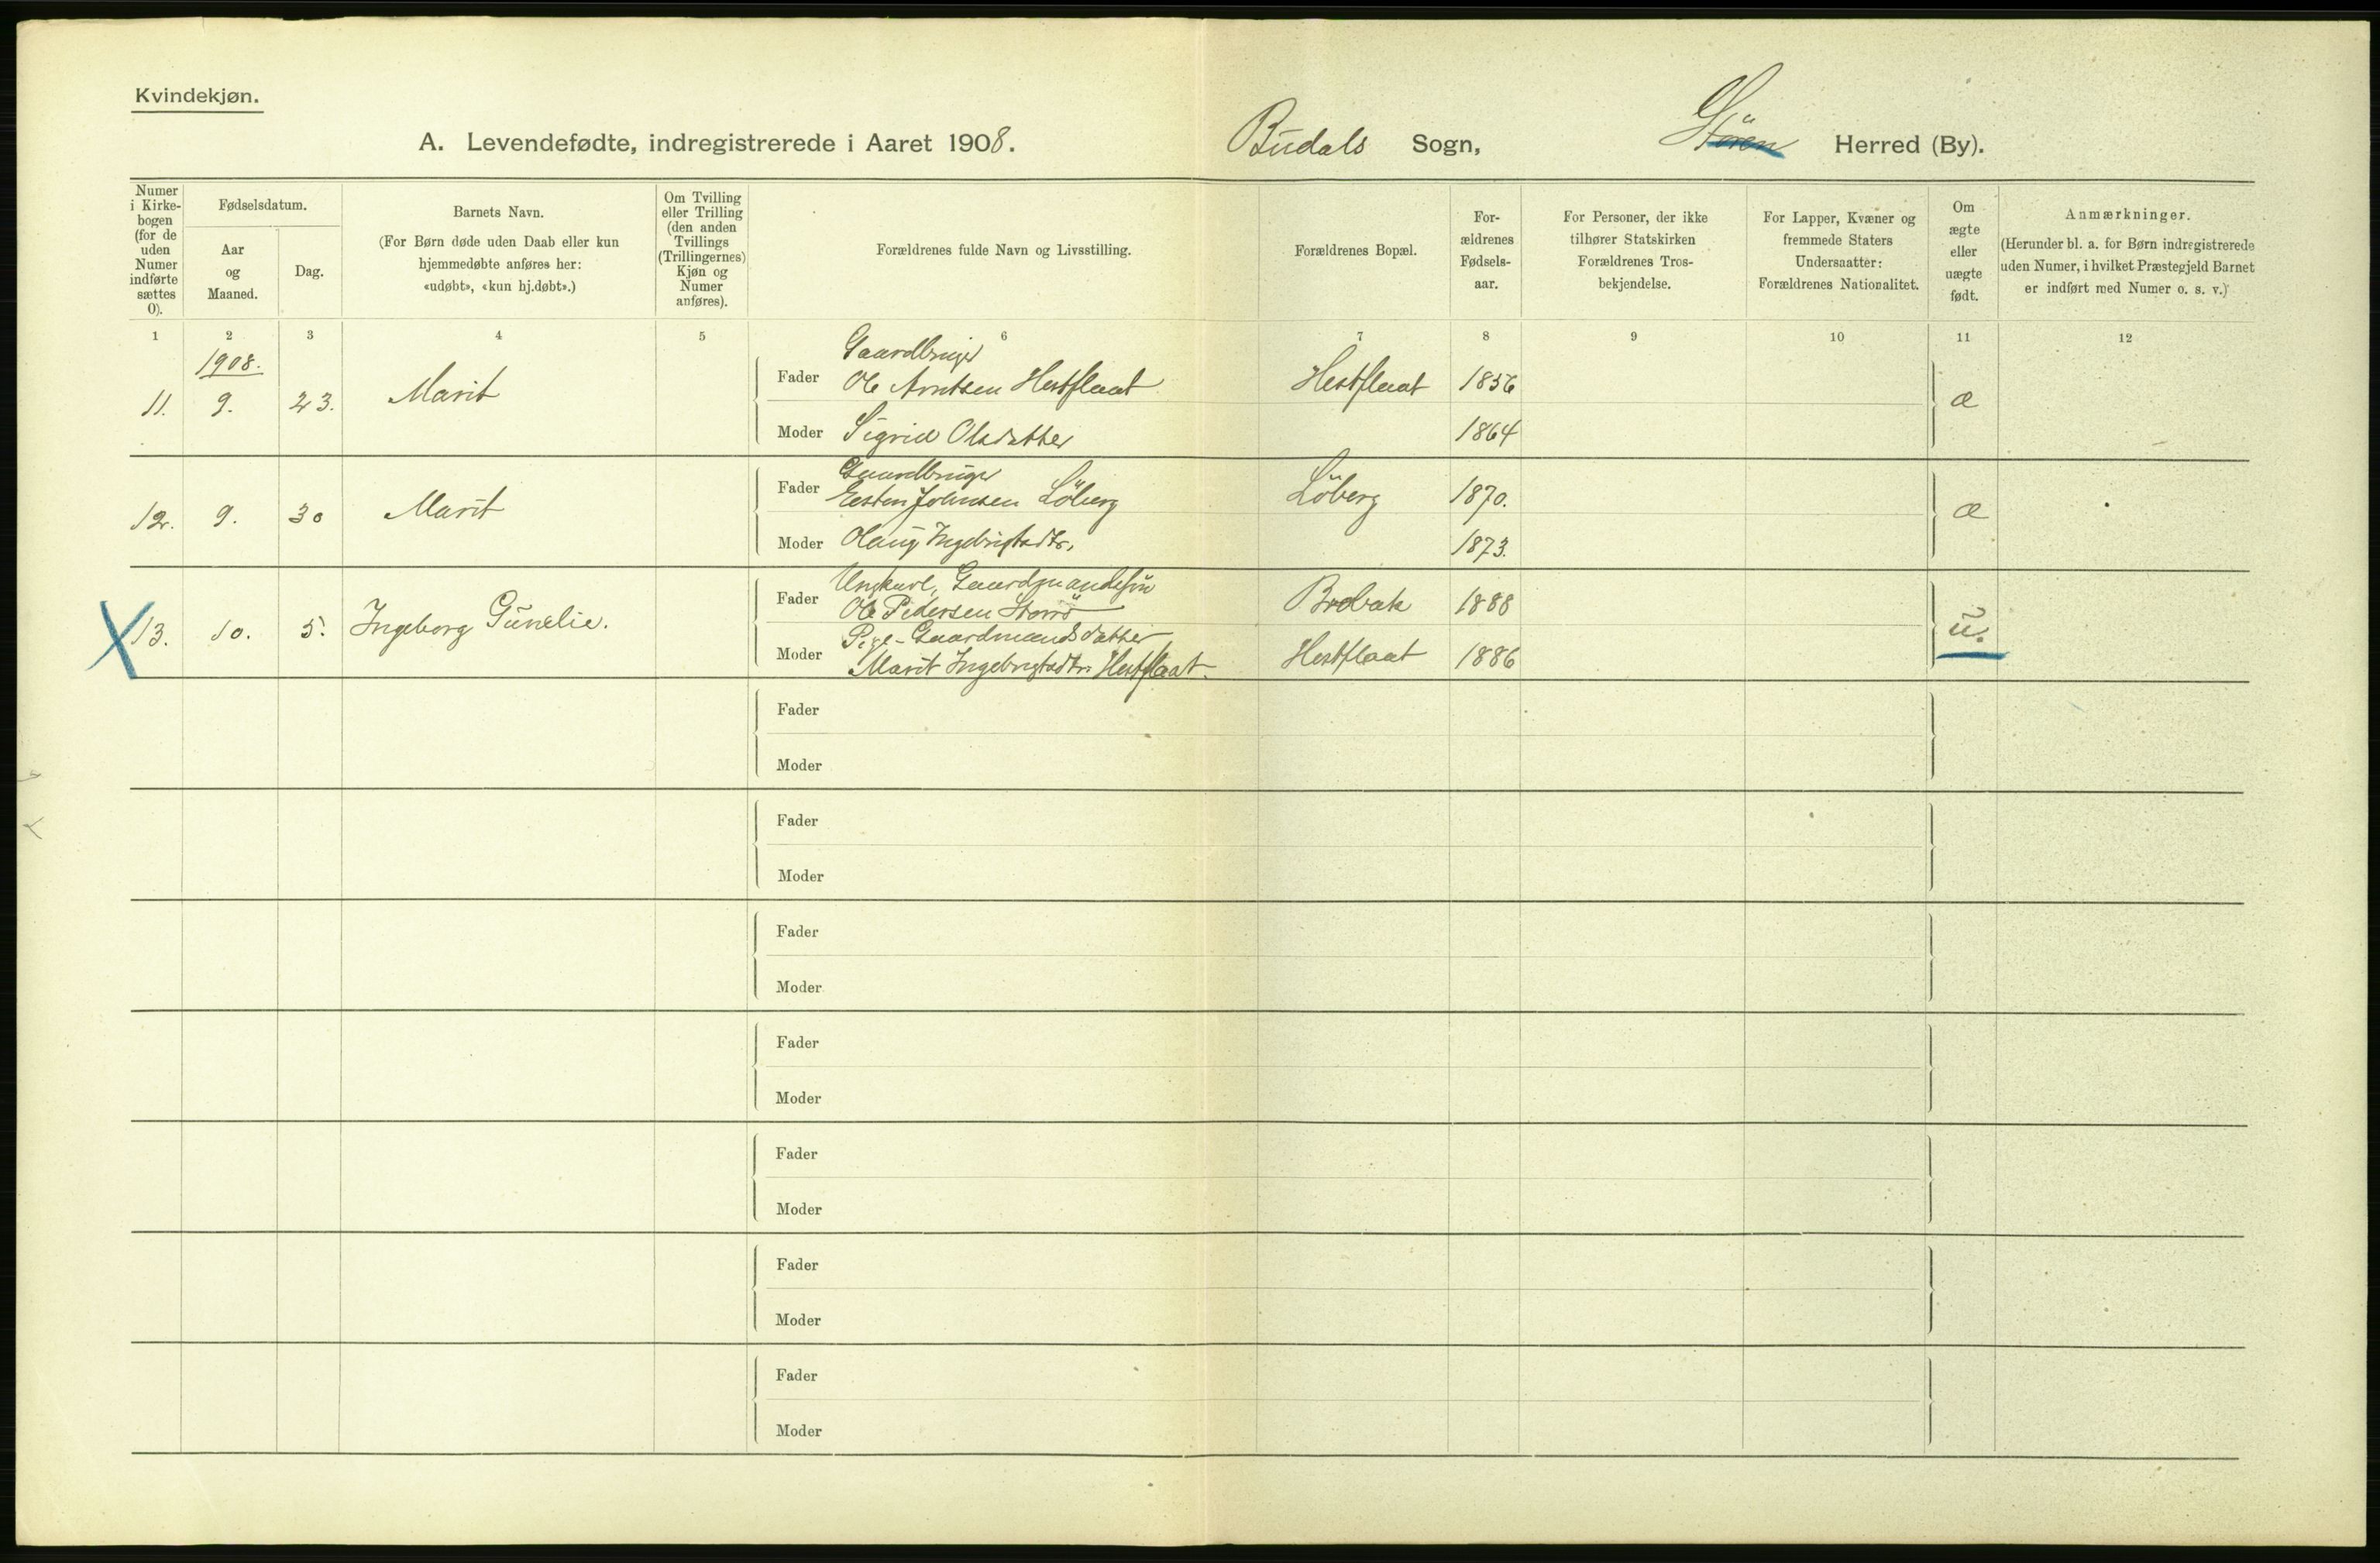 Kvindekjøn.
A. Levendefødte, indregistrerede i Aaret 1908. Budals Sogn, Støren Herred (By).
Numer i Kirkebogen (for de uden Numer indførte sættes 0).
Fødselsdatum.
Aar og Maaned.
Dag.
Barnets Navn.
(For Børn døde uden Daab eller kun
hjemmedøbte anføres her:
«udøbt», «kun hj.døbt».)
Om Tvilling
eller Trilling
(den anden
Tvillings
(Trillingernes)
Kjøn og
Numer
anføres).
Forældrenes fulde Navn og Livsstilling.
Forældrenes Bopæl.
For-
ældrenes
Fødsels-
aar.
For Personer, der ikke
tilhører Statskirken
Forældrenes Tros-
bekjendelse.
For Lapper, Kvæner og
fremmede Staters
Undersaatter:
Forældrenes Nationalitet.
Om
ægte
eller
uægte
født.
Anmærkninger.
(Herunder bl. a. for Børn indregistrerede
uden Numer, i hvilket Præstegjeld Barnet
er indført med Numer o. s. v.)
1 2 3 4 5 6 7 8 9 10 11 12
1908.
Gaardbruger
11. 9. 23. Marit Fader Ole Arntsen Hestflaat Hestflaat 1856 æ
Moder Sigrid Olsdatter 1864
Gaardbruger
12. 9. 30 Marit Fader Eesten Johnsen Löberg Löberg 1870. æ
Moder Olaug Ingebrigtsdtr. 1873.
Ungkarl, Gaardmandssön
13. 10. 5. Ingeborg Gunelie. Fader Ole Pedersen Storrö Brobak 1888 u.
Pige - Gaardmandsdatter
Moder Marit Ingebrigtsdtr. Hestflaat. Hestflaat 1886
Fader
Moder
Fader
Moder
Fader
Moder
Fader
Moder
Fader
Moder
Fader
Moder
Fader
Moder